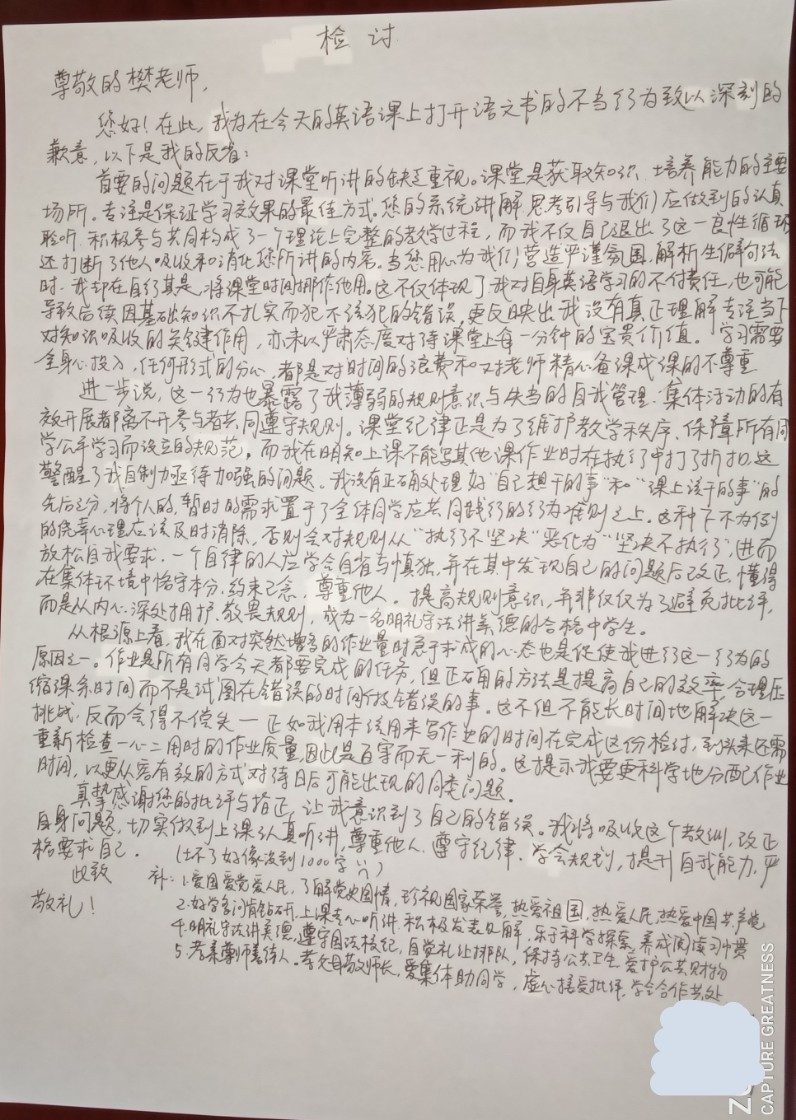 检讨
尊敬的樊老师,
您好!在此,我为在今天的英语课上打开语文书的不当行为致以深刻的
歉意,以下是我的反省:
首要的问题在于我对课堂听讲的缺乏重视。课堂是获取知识、培养能力的主要
场所,专注是保证学习效果的最佳方式。您的系统讲解、思考引导与我们应做到的认真
聆听、积极参与共同构成了一个理论上完整的教学过程,而我不仅自己退出了这一良性循环
还打断了他人吸收和消化您所讲的内容。当您用心为我们营造严谨氛围,解析生僻句法
时,我却在自行其是,将课堂时间挪作他用。这不仅体现了我对自身英语学习的不付责任,也可能
导致后续因基础知识不扎实而犯不该犯的错误,更反映出我没有真正理解专注当下
对知识吸收的关键作用,亦未以严肃态度对待课堂上每一分钟的宝贵价值。学习需要
全身心投入,任何形式的分心,都是对时间的浪费和对老师精心备课成课的不尊重
进一步说,这一行为也暴露了我薄弱的规则意识与失当的自我管理。集体活动的有
效开展都离不开参与者共同遵守规则,课堂纪律正是为了维护教学秩序、保障所有同
学公平学习而设立的规范,而我在明知上课不能写其他课作业时在执行中打了折扣,这
警醒了我自制力亟待加强的问题。我没有正确处理好“自己想干的事”和“课上该干的事”的
先后之分,将个人的、暂时的需求置于了全体同学应共同践行的行为准则之上。这种下不为例
的侥幸心理应该及时消除,否则会对规则从“执行不坚决”恶化为“坚决不执行”,进而
放松自我要求。一个自律的人应学会自省与慎独,并在其中发现自己的问题后改正,懂得
在集体环境中恪守本分、约束己念,尊重他人。提高规则意识,并非仅仅为了避免批评,
而是从内心深处拥护、敬畏规则,成为一名明礼守法讲美德的合格中学生。
从根源上看,我在面对突然增多的作业量时急于求成的心态也是促使我进行这一行为的
原因之一。作业是所有同学今天都要完成的任务,但正确的方法是提高自己的效率,合理压
缩课余时间而不是试图在错误的时间段错误的事。这不但不能长时间地解决这一
挑战,反而会得不偿失——正如我用本该用来写作业的时间在完成这份检讨,到头来还需
重新检查一心二用时的作业质量,因此是百害而无一利的。这提示我要更科学地分配作业
时间,以更从容有效的方式对待日后可能出现的同类问题。
真挚感谢您的批评与指正,让我意识到了自己的错误。我将吸收这个教训,改正
自身问题,切实做到上课认真听讲,尊重他人、遵守纪律、学会规划,提升自我能力,严
格要求自己。(坏了好像没到1000字
此致 补:1.爱国爱党爱人民,了解党史国情,珍视国家荣誉,热爱祖国,热爱人民,热爱中国共产党
敬礼! 2.好学多问肯钻研,上课专心听讲,积极发表见解,乐于科学探索,养成阅读习惯
4.明礼守法讲美德,遵守国法校纪,自觉礼让排队,保持公共卫生,爱护公共财物
5.孝亲尊师善待人。孝父母敬师长,爱集体助同学,虚心接受批评,学会合作共处
CAPTURE GREATNESS